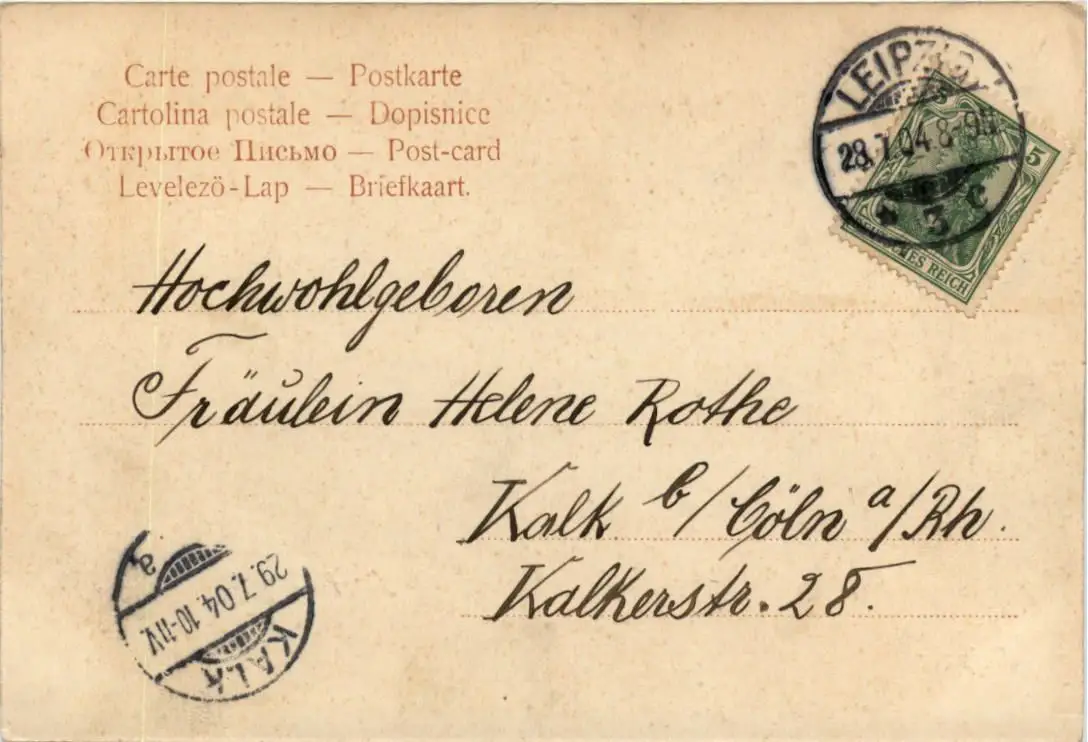 Carte postale — Postkarte
Cartolina postale — Dopisnice
Открытое Письмо — Post-card
Levelező-Lap — Briefkaart.
LEIPZIG
28.7.04. 8-9N
* 3 c
5
DEUTSCHES REICH
Hochwohlgeboren
Fräulein Helene Rothe
Kalk b/Cöln a/Rh.
Kalkerstr. 28.
KALK
29.7.04. 10-11V.
a